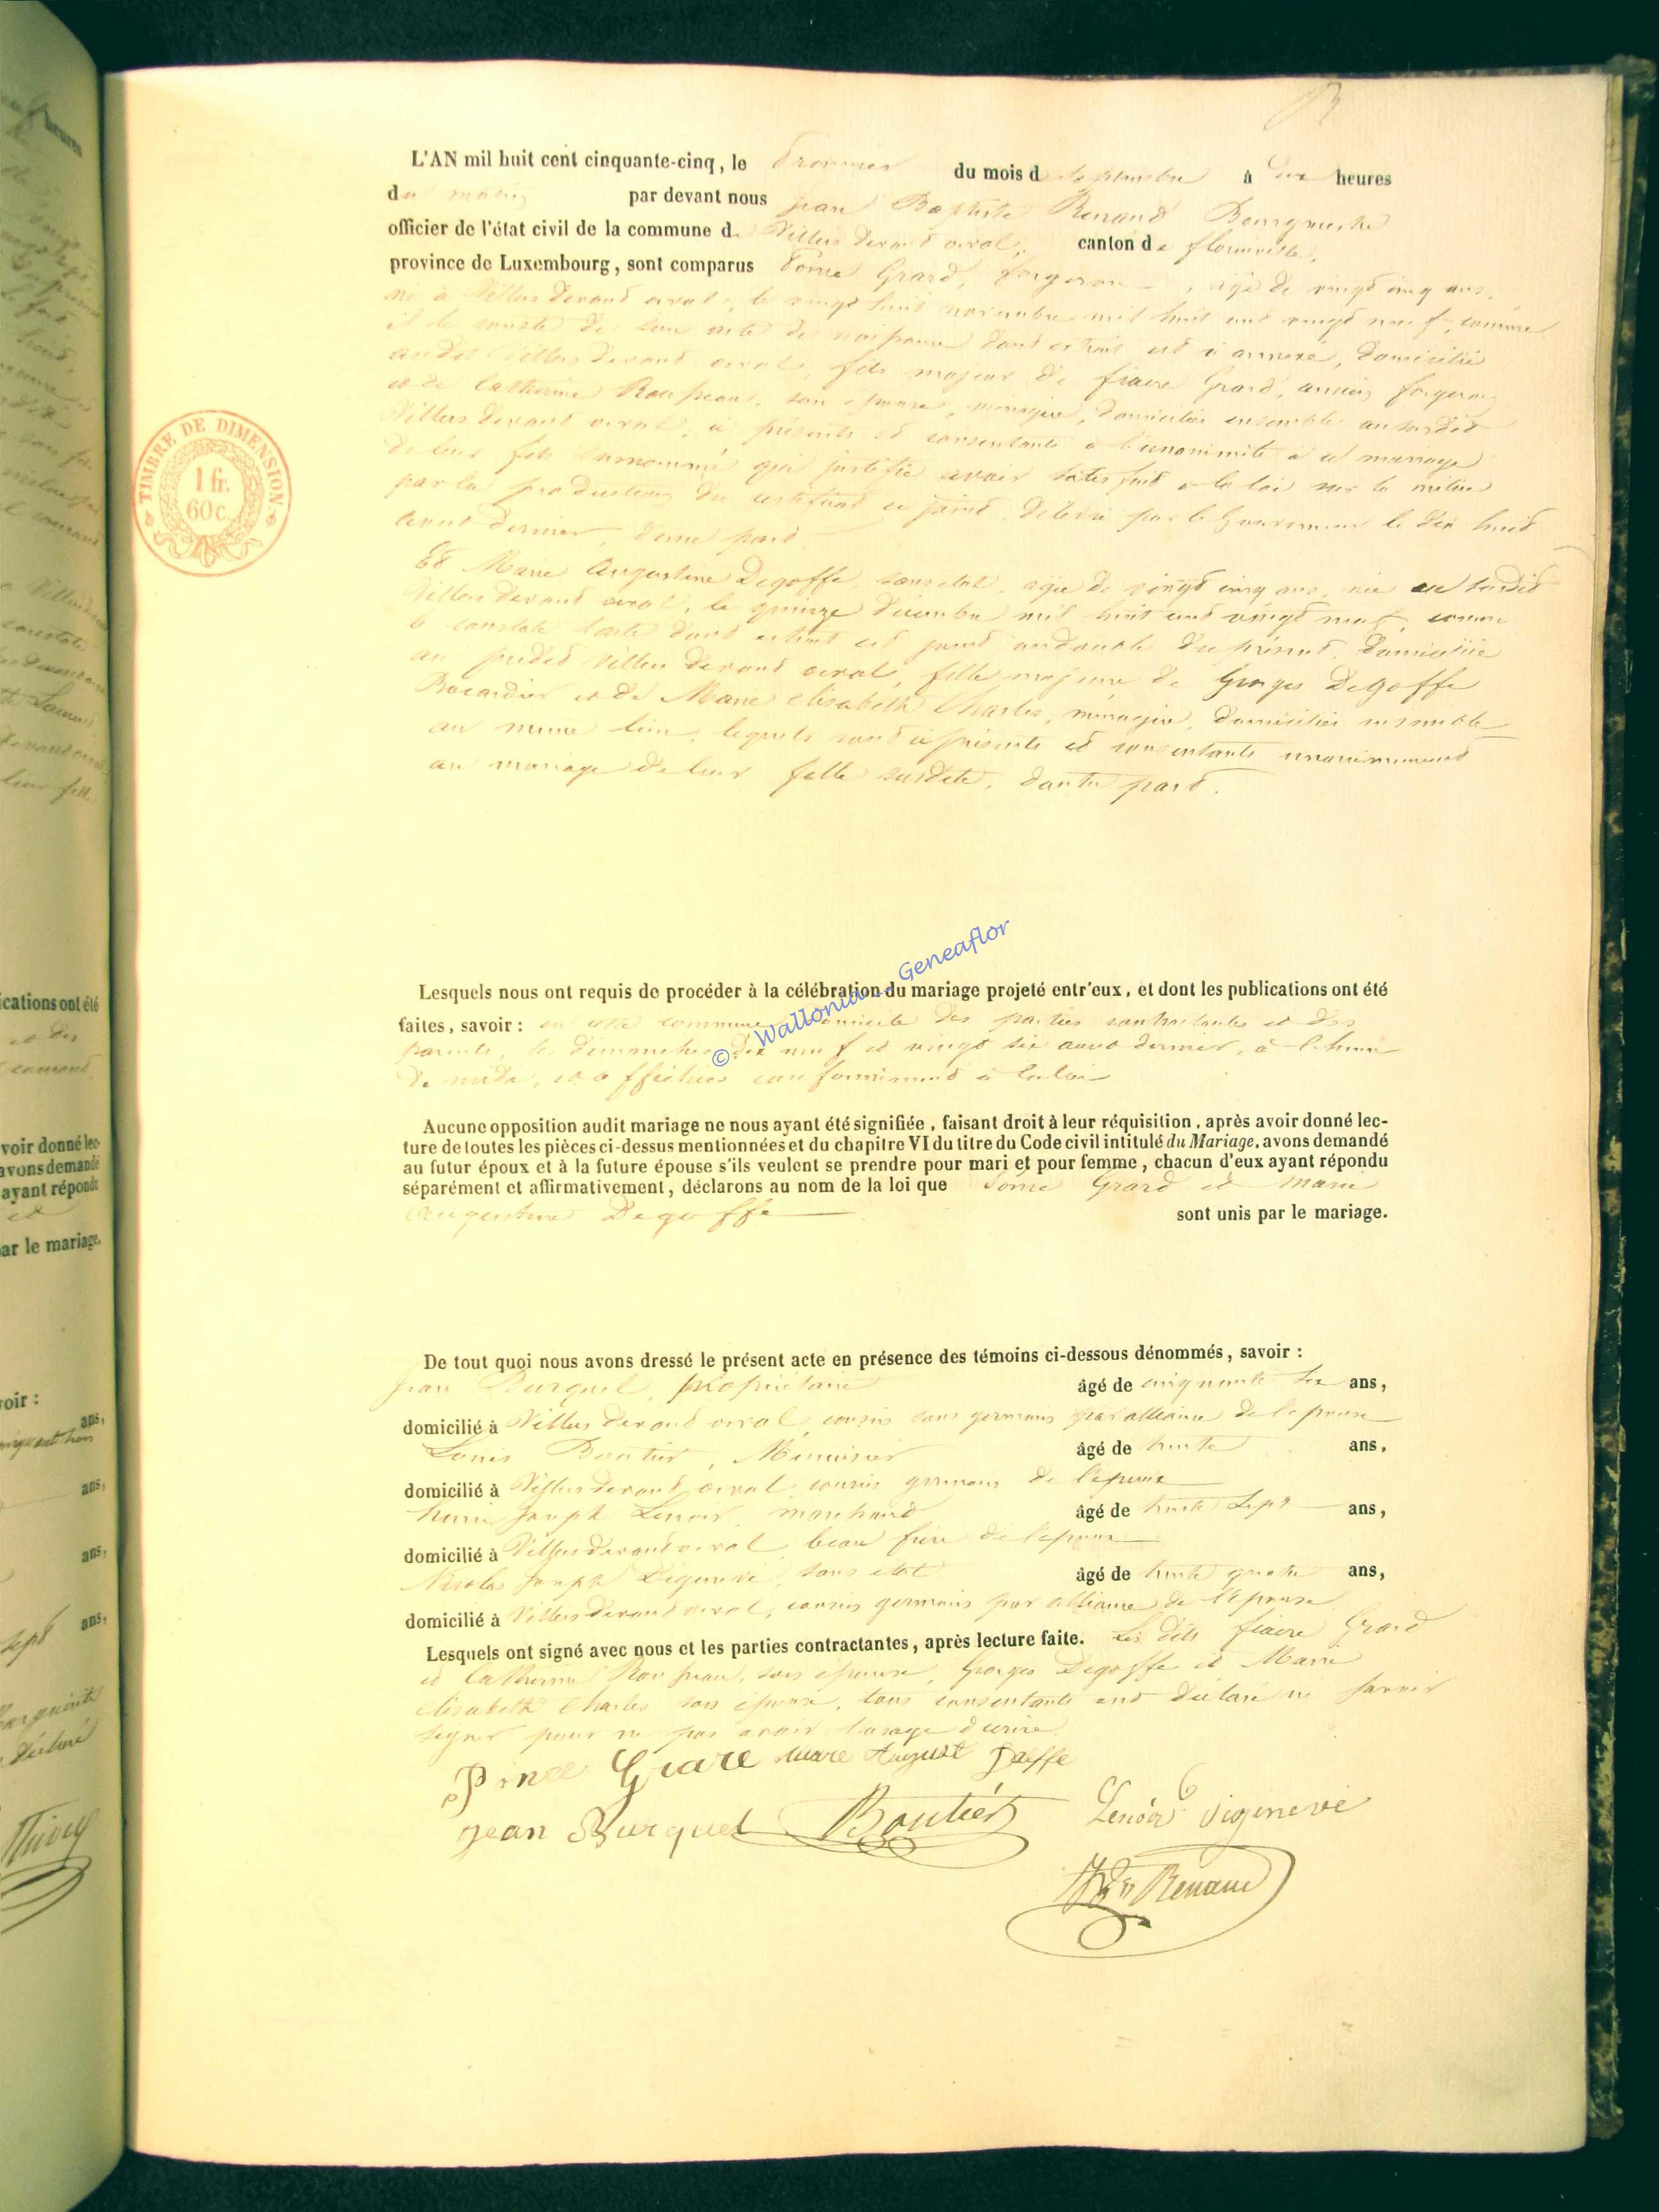 L'AN mil huit cent cinquante-cinq, le premier du mois de septembre à dix heures
du matin par devant nous Jean Baptiste Renaud Bourgmestre
officier de l'état civil de la commune de Villers devant orval, canton de florenville,
province de Luxembourg, sont comparus Grard, forgeron, âgé de vingt cinq ans,
né à Villers devant orval, le vingt huit novembre mil huit cent vingt neuf, comme
il le conste de son acte de naissance dont extrait est ci annexé, domicilié
audit Villers devant orval, fils majeur de fiacre Grard, ancien forgeron
et de Catherine son épouse, ménagère, domiciliés ensemble au susdit
Villers devant orval, ci présents et consentants à l'unanimité à ce mariage
de leur fils surnommé qui justifie avoir satisfait à la loi sur la milice
par la production du certificat ci joint, délivré par le Gouverneur le dix huit
dernier, d'une part.
Et Marie Augustine Degoffe, sans état, âgée de vingt cinq ans, née au susdit
Villers devant orval, le quinze décembre mil huit cent vingt neuf, comme
le constate l'acte dont extrait est joint au double du présent, domiciliée
au prédit Villers devant orval, fille majeure de Georges Degoffe
et de Marie Elisabeth Charles, ménagère, domiciliés ensemble
au même lieu, lesquels sont ci présents et consentants unanimement
au mariage de leur fille susdite, d'autre part.
TIMBRE DE DIMENSION
1 fr.
60 c.
Lesquels nous ont requis de procéder à la célébration du mariage projeté entr'eux, et dont les publications ont été
faites, savoir : en cette commune, domicile des parties contractantes et des
parents, les dimanches dix neuf et vingt six août dernier, à l'heure
de midi, et affichées conformément à la loi
© Wallonia _ Geneaflor
Aucune opposition audit mariage ne nous ayant été signifiée, faisant droit à leur réquisition, après avoir donné lec-
ture de toutes les pièces ci-dessus mentionnées et du chapitre VI du titre du Code civil intitulé du Mariage, avons demandé
au futur époux et à la future épouse s'ils veulent se prendre pour mari et pour femme, chacun d'eux ayant répondu
séparément et affirmativement, déclarons au nom de la loi que Grard et Marie
Augustine Degoffe sont unis par le mariage.
De tout quoi nous avons dressé le présent acte en présence des témoins ci-dessous dénommés, savoir :
Jean Burquel, propriétaire âgé de cinquante six ans,
domicilié à Villers devant orval, cousin sous germain par alliance de l'épouse
Louis Boutier, Menuisier âgé de trente ans,
domicilié à Villers devant orval, cousin germain de l'épouse
Joseph Lenoir, marchand âgé de trente sept ans,
domicilié à Villers devant orval, beau frère de l'époux
Nicolas Joseph Digenève, sans état âgé de trente quatre ans,
domicilié à Villers devant orval, cousin germain par alliance de l'épouse
Lesquels ont signé avec nous et les parties contractantes, après lecture faite. Les dits fiacre Grard
et Catherine son épouse, Georges Degoffe et Marie
Elisabeth Charles son épouse, tous consentants ont déclaré ne savoir
signer pour ne pas avoir l'usage d'écrire.
Marie August
Jean Burquel Boutier Lenoir Digineve
Renaud